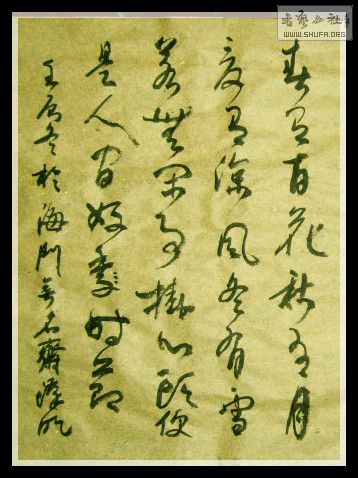 春有百花秋有月
夏有凉风冬有雪
若无闲事挂心头便
是人间好季时节
壬辰冬於海门无名斋
书艺公社
WWW.SHUFA.ORG